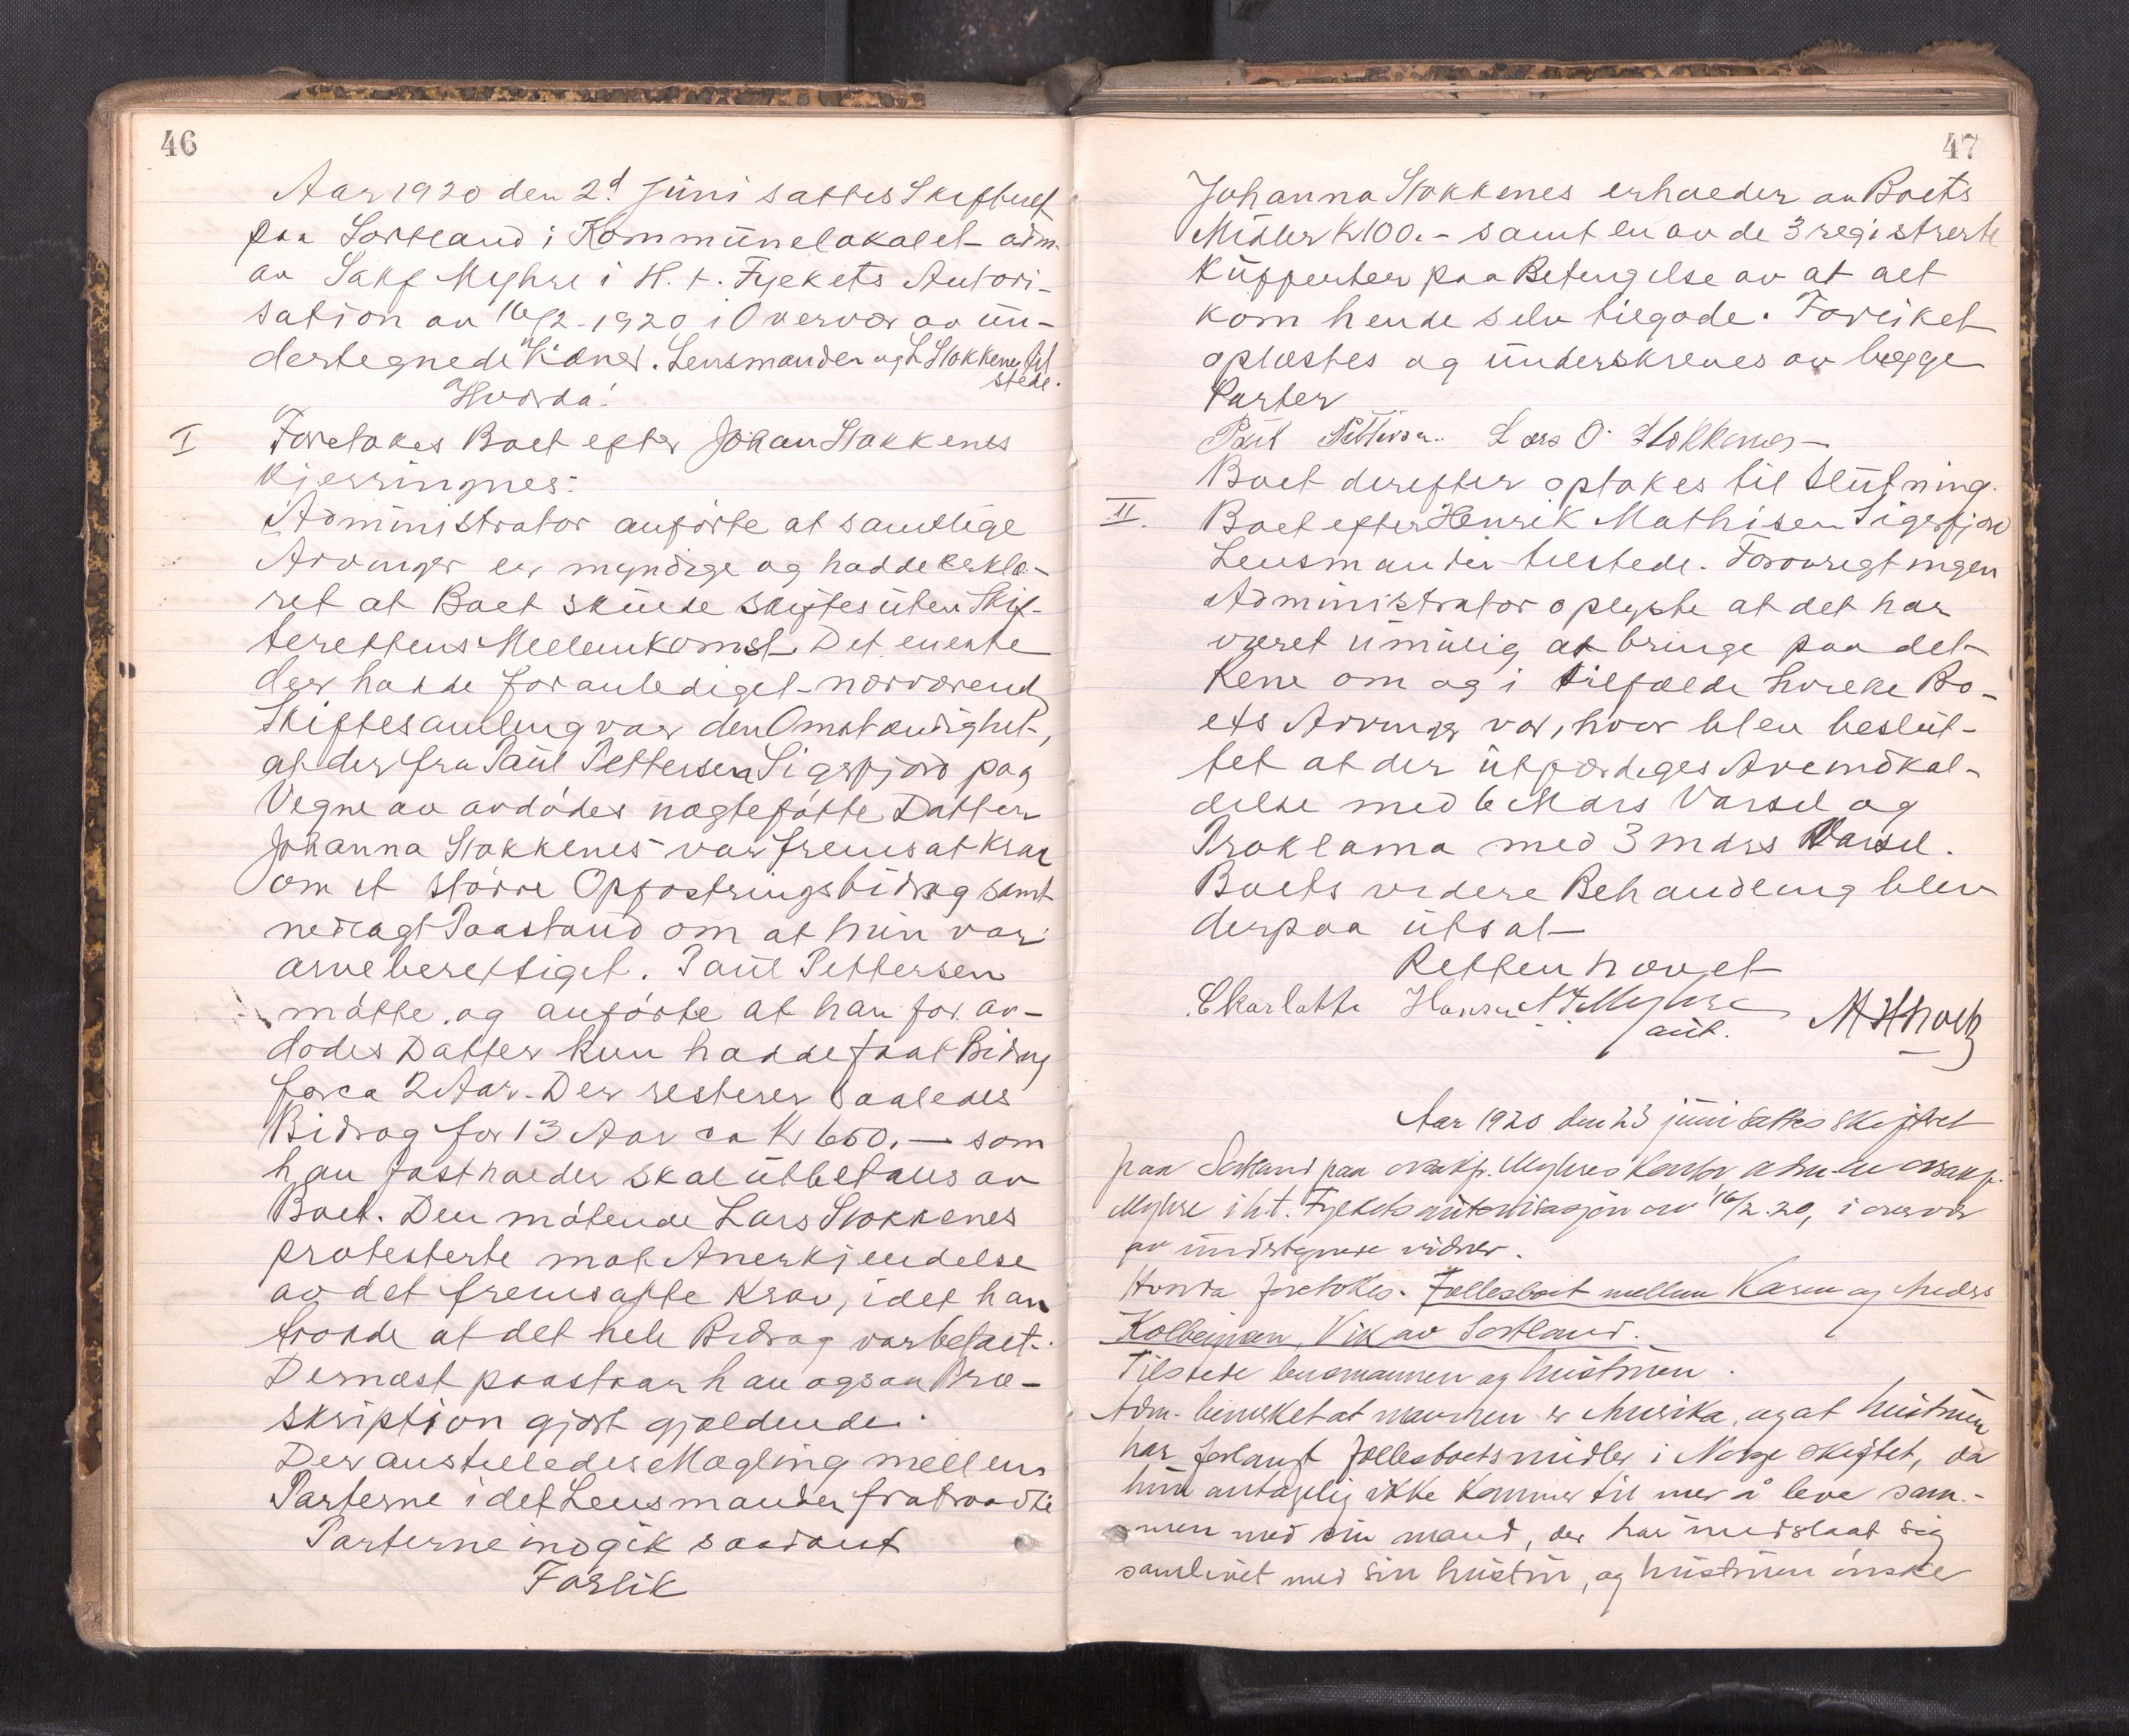 46
Aar 1920 den 2d Juni sattes Skifteret
paa Sortland i Kommunelokalet adm.
av Sakf Myhre i H. t. Fylkets Autori-
sation av 16/2-1920 i Overvær av un-
dertegnede Vidner. Lensmanden og L Stokkenes til
stede.
Hvorda!
I Foretokes Boet efter Johan Stokkenes
Kjerringnes:
Administrator anførte at samtlige
Arvinger er myndige og hadde erklæ-
ret at Boet skulde skiftes uten Skif-
terettens Mellemkomst. Det eneste
der hadde foranlediget nærværende
Skiftesamling var den Omstændighet,
at der fra Paul Pettersen Sigerfjord paa
Vegne av avdødes uægtefødte Datter
Johanna Stokkenes var fremsat Krav
om et større Opfostringsbidrag samt
nedlagt Paastand om at hun var
arveberettiget. Paul Pettersen
møtte og anførte at han for av-
dødes Datter kun hadde faat Bidrag
for ca 2 Aar. Der resterer saaledes
Bidrag for 13 Aar ca Kr 650.- som
han fastholder skal utbetales av
Boet. Den møtende Lars Stokkenes
protesterte mot Anerkjendelse
av det fremsatte Krav, idet han
trodde at det hele Bidrag var betalt.
Dernæst paastaar han ogsaa Præ-
skription gjort gjældende.
Der anstilledes Mægling mellem
Parterne idet Lensmanden fratraadte
Parterne indgik saadant
Forlik
47
Johanna Stokkenes erholder av Boets
Midler k 100.- samt en av de 3 registrerte
Kupperter paa Betingelse av at det
kom hende selv tilgode. Forliket
oplæstes og underskreves av begge
Parter
Paul Pettersen. Lars O. Stokkenes
Boet derefter optokes til Slutning.
II. Boet efter Henrik Mathisen Sigerfjord
Lensmanden tilstede. Forøvrigt ingen
Administrator oplyste at det har
været umulig at bringe paa det
Rene om og i tilfælde hvilke Bo-
ets Arvinger var, hvor blev beslut-
tet at der utfærdiges Arveindkal-
delse med 6 Mdrs Varsel og
Proklama med 3 mdrs Varsel.
Boets videre Behandling blev
derpaa utsat
Retten hævet
Charlotte Hansen Myhre
aut.
Aar 1920 den 23 juni sattes skifteret
paa Sortland paa ovsakf. Myhres kontor, adm. av ovsakf.
Myhre i h.t. Fylkets autorisasjon av 16/2.20, i overvær
av undertegnede vidner.
Hvorda foretokes. Fællesboet mellem Karen og Anders
Kolbeinsen, Vik av Sortland.
Tilstede lensmannen og hustruen.
Adm. bemerket at mannen er Amerika, og at hustruen
har forlangt fællesboets midler i Norge skiftet, da
hun antagelig ikke kommer til mer å leve sam-
men med sin mand, der har undslaat sig
samlivet med sin hustru, og hustruen ønsker